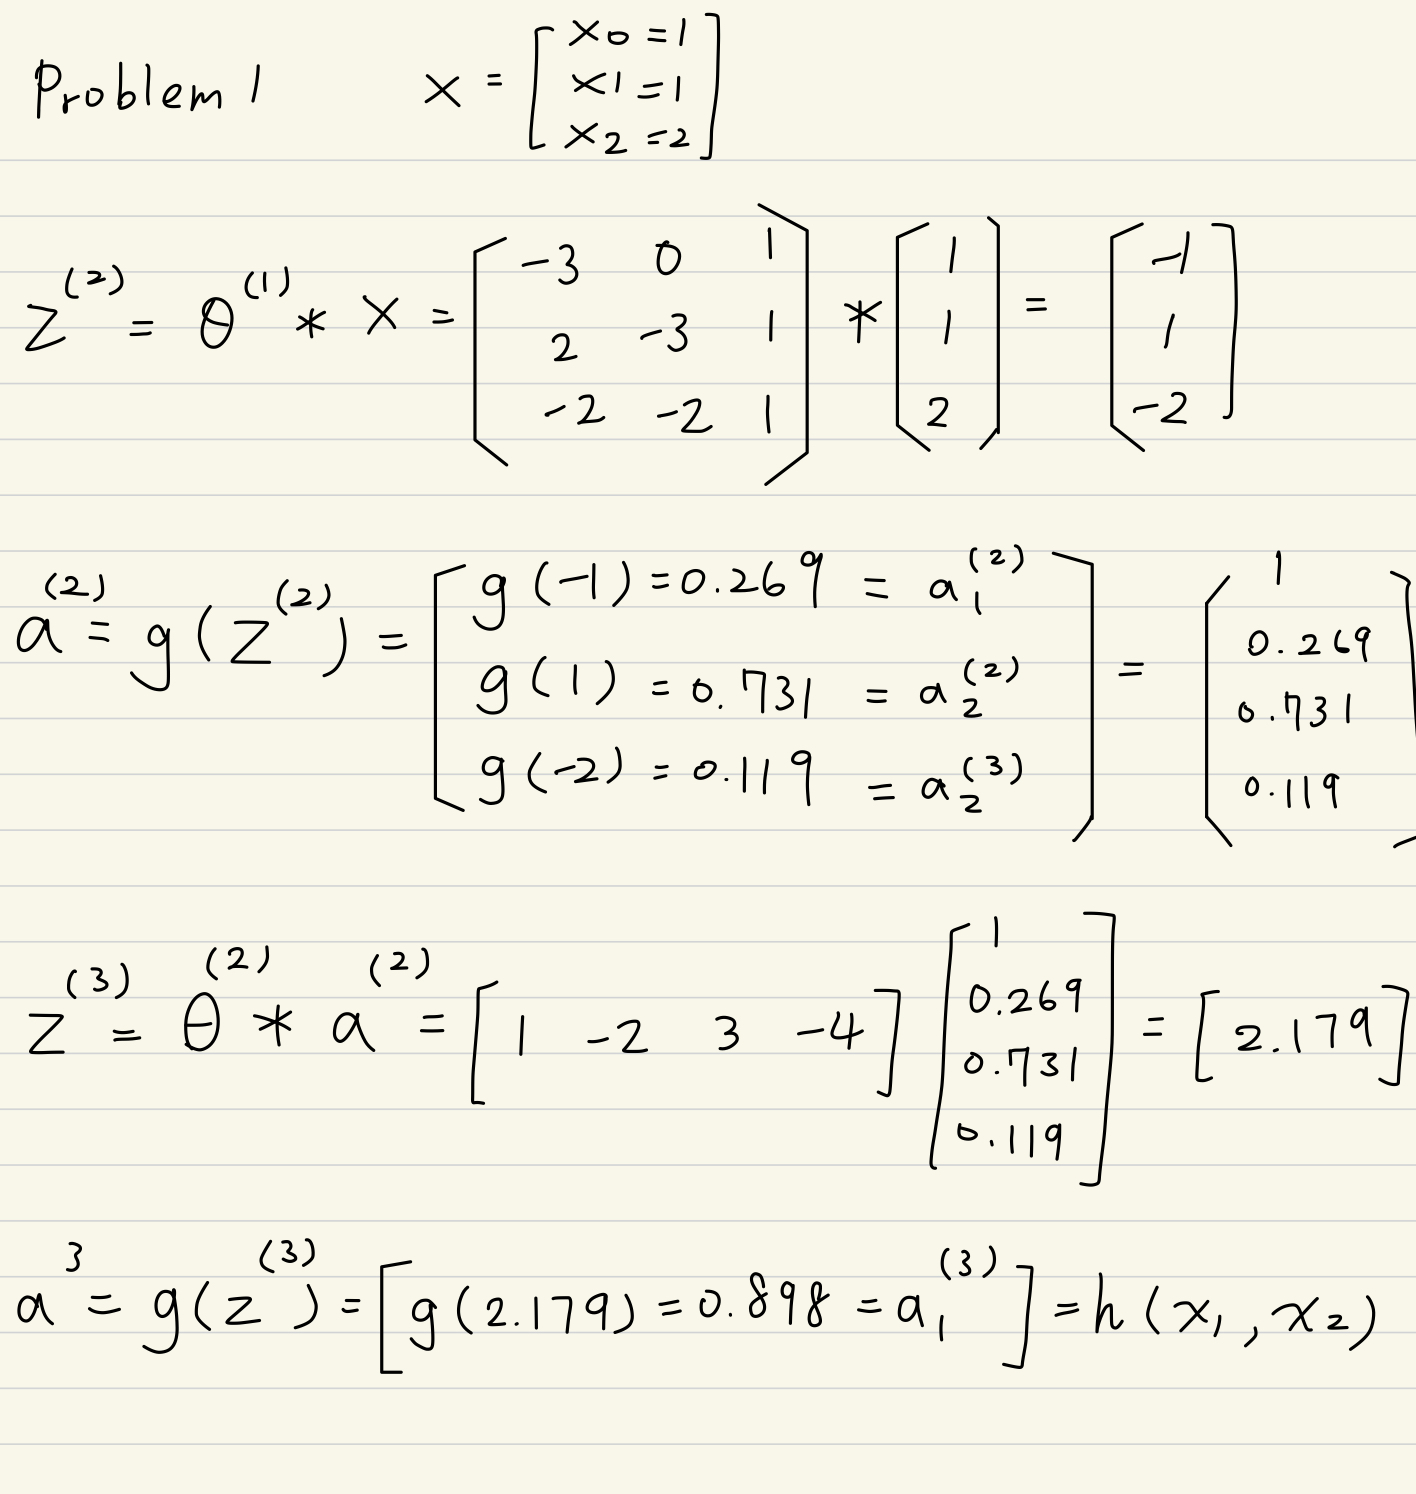 Problem 1 x = [x0 = 1
x1 = 1
x2 = 2]
z^(2) = θ^(1) * x = [-3 0 1
2 -3 1
-2 -2 1] * [1
1
2] = [-1
1
-2]
a^(2) = g(z^(2)) = [g(-1) = 0.269 = a_1^(2)
g(1) = 0.731 = a_2^(2)
g(-2) = 0.119 = a_2^(3)] = [1
0.269
0.731
0.119]
z^(3) = θ^(2) * a^(2) = [1 -2 3 -4] [1
0.269
0.731
0.119] = [2.179]
a^3 = g(z^(3)) = [g(2.179) = 0.898 = a_1^(3)] = h(x_1, x_2)